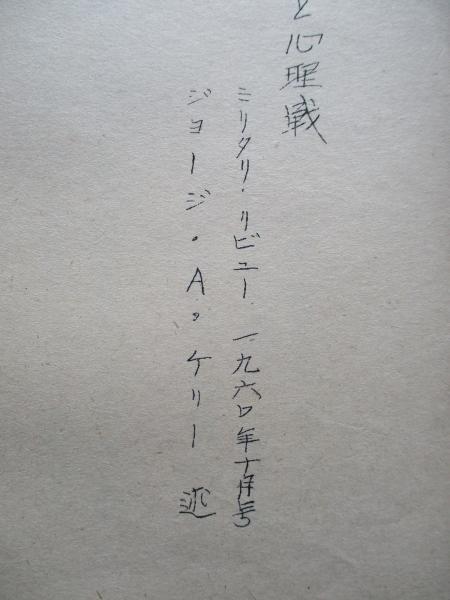 と心理戦
ミリタリ・リビュー 一九六〇年十月号
ジョージ・A・ケリー 述